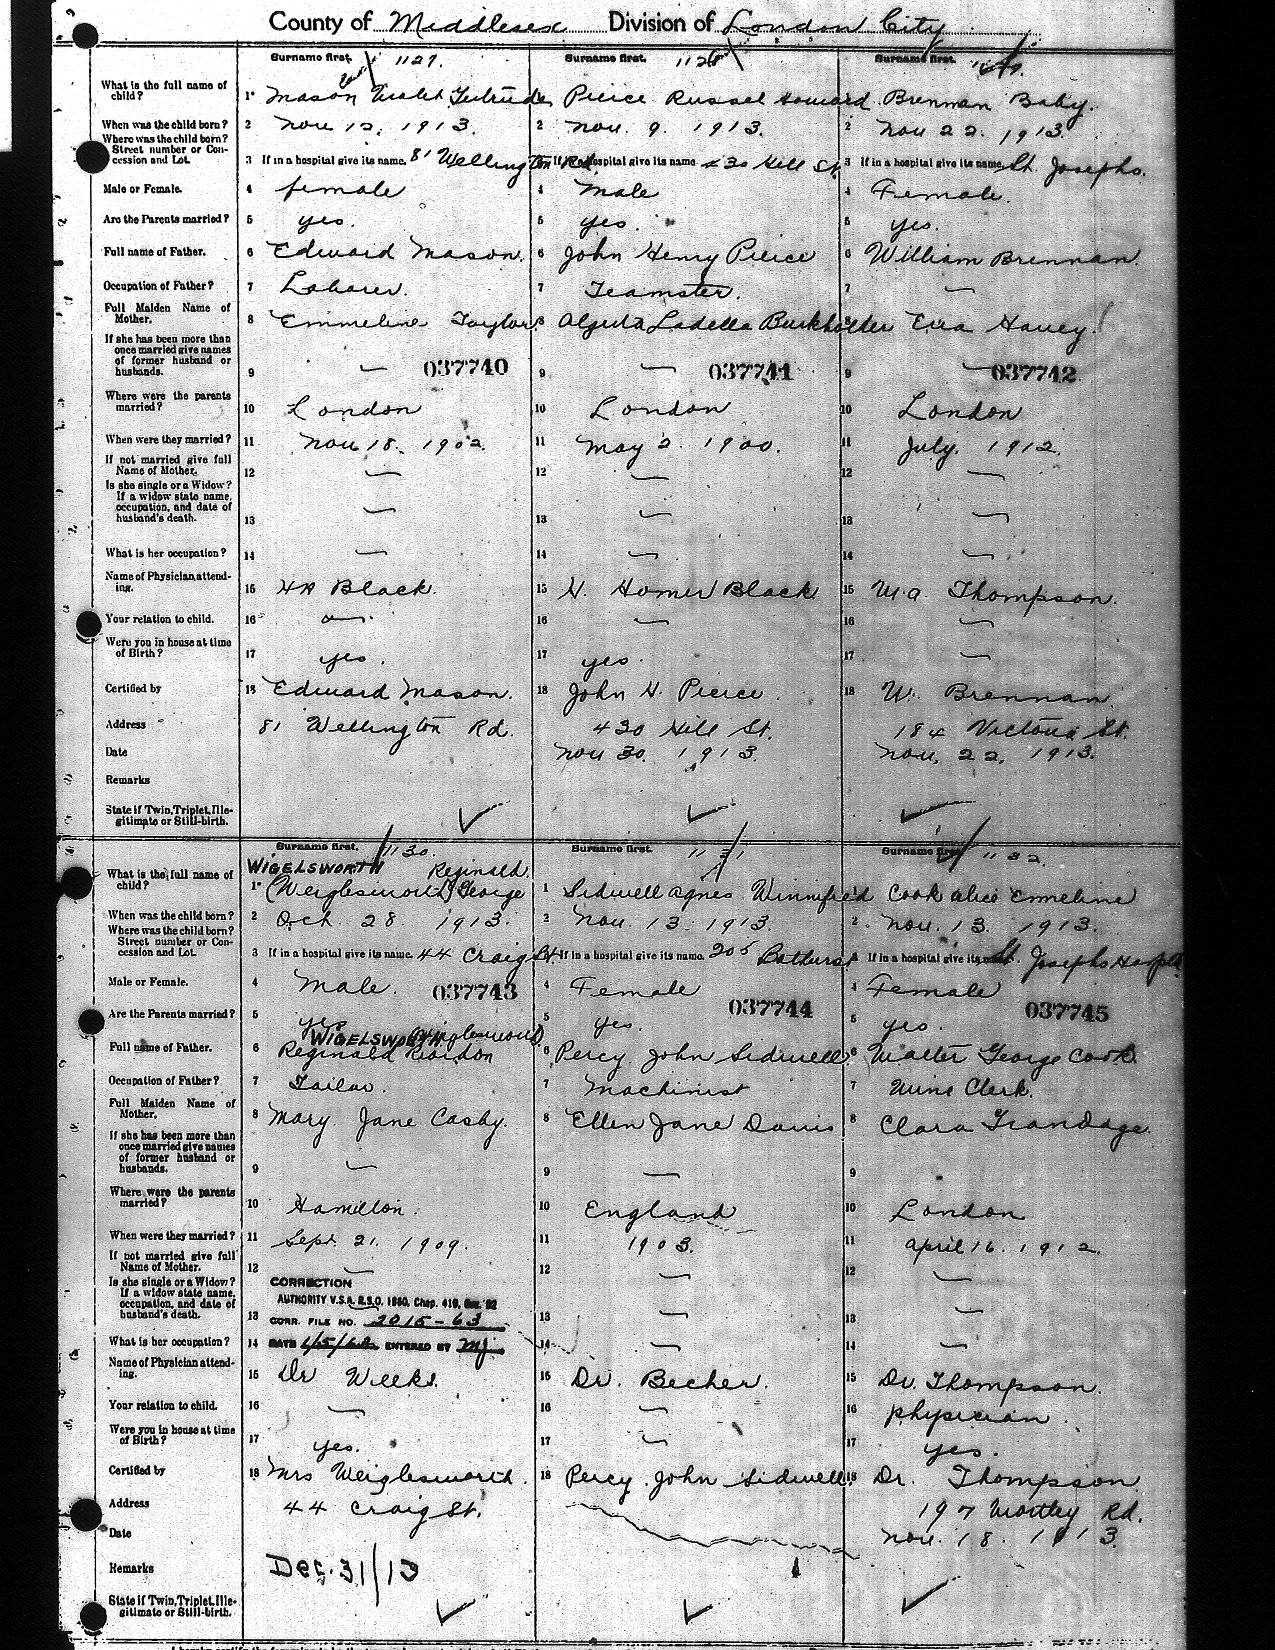 County of Middlesex Division of London City
Surname first. 1127. Surname first. Surname first.
What is the full name of child? 1 Mason Violet Gertrude Pierce Russel Howard Brennan Baby.
When was the child born? 2 Nov 12. 1913. 2 Nov. 9. 1913. 2 Nov 22. 1913.
Where was the child born? Street number or Concession and Lot. 3 If in a hospital give its name. 81 Wellington Rd. If in a hospital give its name 430 Hill St. 3 If in a hospital give its name. St. Josephs.
Male or Female. 4 female 4 Male 4 Female.
Are the Parents married? 5 yes. 5 yes. 5 yes.
Full name of Father. 6 Edward Mason. 6 John Henry Pierce 6 William Brennan.
Occupation of Father? 7 Laborer. 7 Teamster. 7 —
Full Maiden Name of Mother. 8 Emmeline Taylor 8 Ladella Burkholter Harvey.
If she has been more than once married give names of former husband or husbands. 9 — 037740 9 — 037741 9 — 037742
Where were the parents married? 10 London 10 London 10 London
When were they married? 11 Nov 18. 1902. 11 May 2. 1900. 11 July. 1912.
If not married give full Name of Mother. 12 — 12 — 12 —
Is she single or a Widow? If a widow state name, occupation, and date of husband's death. 13 — 13 — 13 —
What is her occupation? 14 — 14 — 14 —
Name of Physician attending. 15 HA Black. 15 H. Homer Black 15 W.A. Thompson.
Your relation to child. 16 — 16 — 16 —
Were you in house at time of Birth? 17 yes. 17 yes. 17 —
Certified by 18 Edward Mason. 18 John H. Pierce. 18 W. Brennan.
Address 81 Wellington Rd. 430 Hill St. 184 Victoria St.
Date Nov 30. 1913. Nov. 22. 1913.
Remarks
State if Twin, Triplet, Illegitimate or Still-birth. ✓ ✓ ✓
Surname first. 1130. Surname first. 1131 Surname first. 1132.
WIGELSWORTH Reginald
What is the full name of child? 1 (Weiglesworth) George 1 Sidwell Agnes Winnifred Cook Alice Emeline
When was the child born? 2 Oct. 28 1913. 2 Nov. 13. 1913. 2 Nov. 13. 1913.
Where was the child born? Street number or Concession and Lot. 3 If in a hospital give its name. 44 Craig St. If in a hospital give its name. 205 Bathurst If in a hospital give its name. St. Josephs Hospital
Male or Female. 4 Male. 037743 4 Female 037744 4 Female 037745
Are the Parents married? 5 yes 5 yes. 5 yes.
WIGELSWORTH (Weiglesworth)
Full name of Father. 6 Reginald 6 Percy John Sidwell 6 Walter George Cook.
Occupation of Father? 7 Tailor. 7 Machinist 7 Wine Clerk.
Full Maiden Name of Mother. 8 Mary Jane Casby. 8 Ellen Jane Davis 8 Clara Trandage.
If she has been more than once married give names of former husband or husbands. 9 — 9 — 9
Where were the parents married? 10 Hamilton. 10 England 10 London
When were they married? 11 Sept. 21. 1909. 11 1903. 11 April 16. 1912.
If not married give full Name of Mother. 12 — 12 — 12 —
CORRECTION
Is she single or a Widow? If a widow state name, occupation, and date of husband's death. 13 — 13 — 13 —
AUTHORITY V.S.A. R.S.O. 1960, Chap. 419, Sec. 22
CORR. FILE NO. 2015-63
What is her occupation? 14 DATE ENTERED BY MJ 14 — 14 —
Name of Physician attending. 15 Dr Weeks. 15 Dr. Becher. 15 Dr. Thompson.
Your relation to child. 16 — 16 — 16 physician.
Were you in house at time of Birth? 17 yes. 17 — 17 yes.
Certified by 18 Mrs Weiglesworth. 18 Percy John Sidwell. 18 Dr. Thompson
Address 44 Craig St. 197 Wortley Rd.
Date Nov. 18. 1913.
Remarks Dec. 31/13
State if Twin, Triplet, Illegitimate or Still-birth. ✓ ✓ ✓